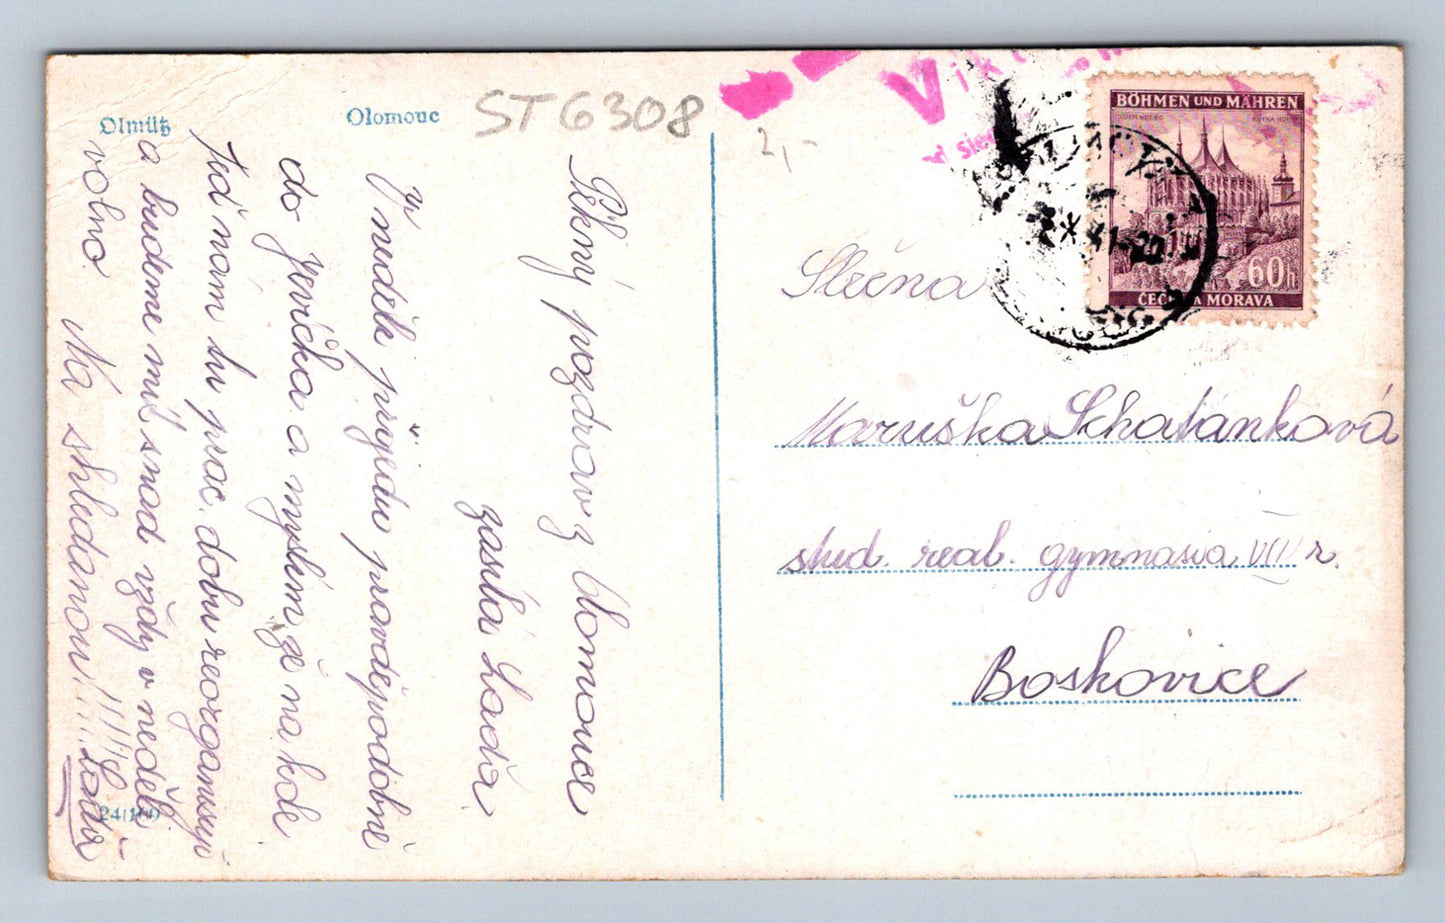 Olmütz
Olomouc
ST6308
2,-
Pěkný pozdrav z Olomouce
zasílá Laďa.
V neděli přijedu pravděpodobně
do Jevíčka a myslím, že na kole
Teď nám tu prac. dobu reorganisují
a budeme míti snad vždy v neděli
volno. Na shledanou!!!!! Laďa
24/1109
Vik
BÖHMEN UND MÄHREN
KUTTENBERG
KUTNA HORA
60h
ČECHY A MORAVA
2 X 41-20
Slečna
Maruška Schatánková
stud. real. gymnasia VII r.
Boskovice